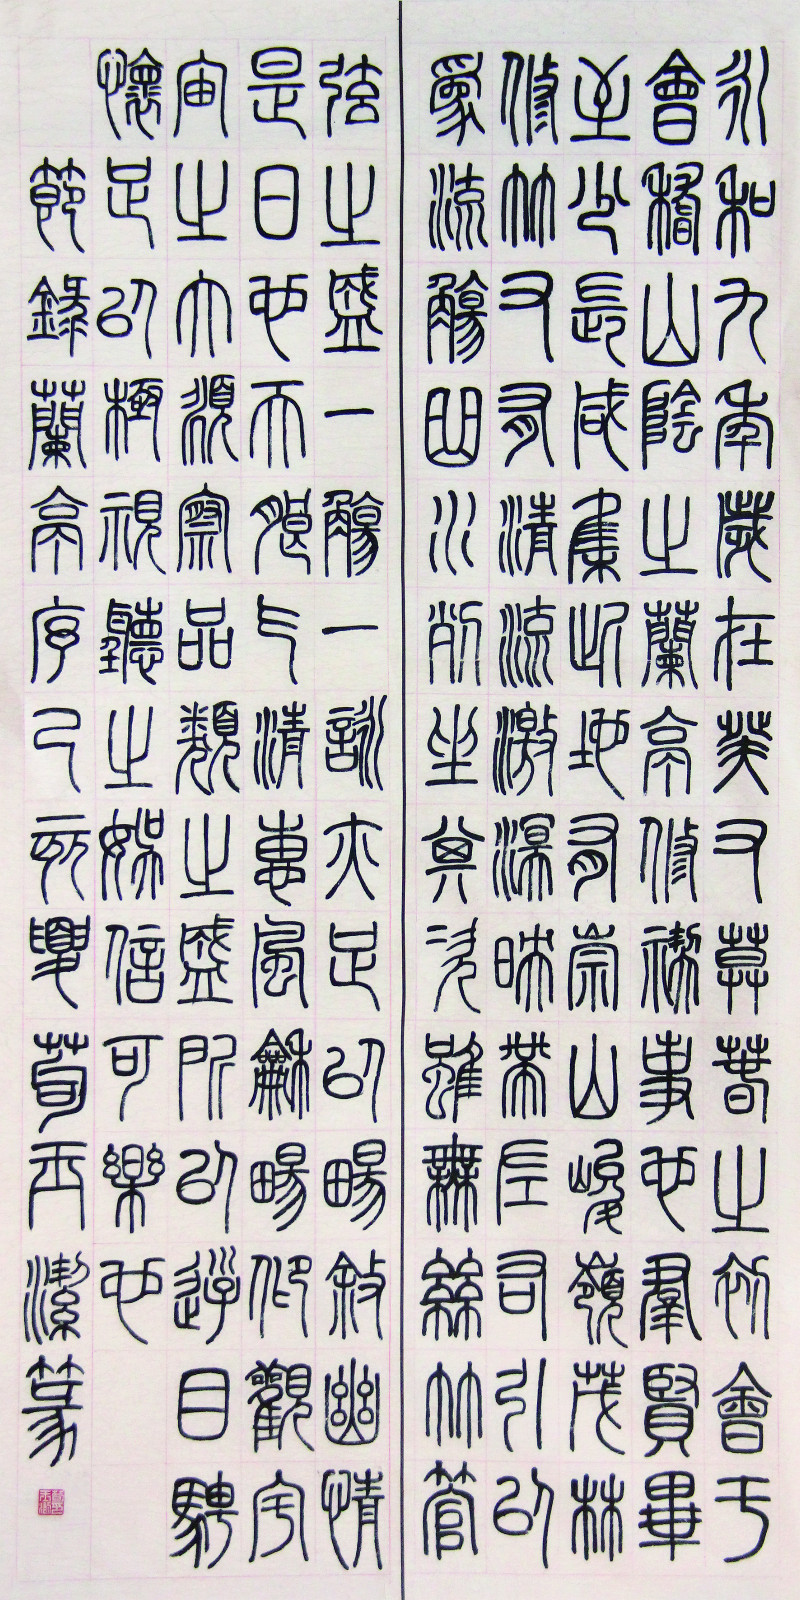 永和九年歲在癸丑暮春之初會于
會稽山陰之蘭亭修禊事也羣賢畢
至少長咸集此地有崇山峻嶺茂林
修竹又有清流激湍映帶左右引以
爲流觴曲水列坐其次雖無絲竹管
弦之盛一觴一詠亦足以暢敘幽情
是日也天朗气清惠風龢暢仰觀宇
宙之大頫察品類之盛所以遊目騁
懷足以極視聽之娛信可樂也
節錄蘭亭序己亥夏荀玉潔篆